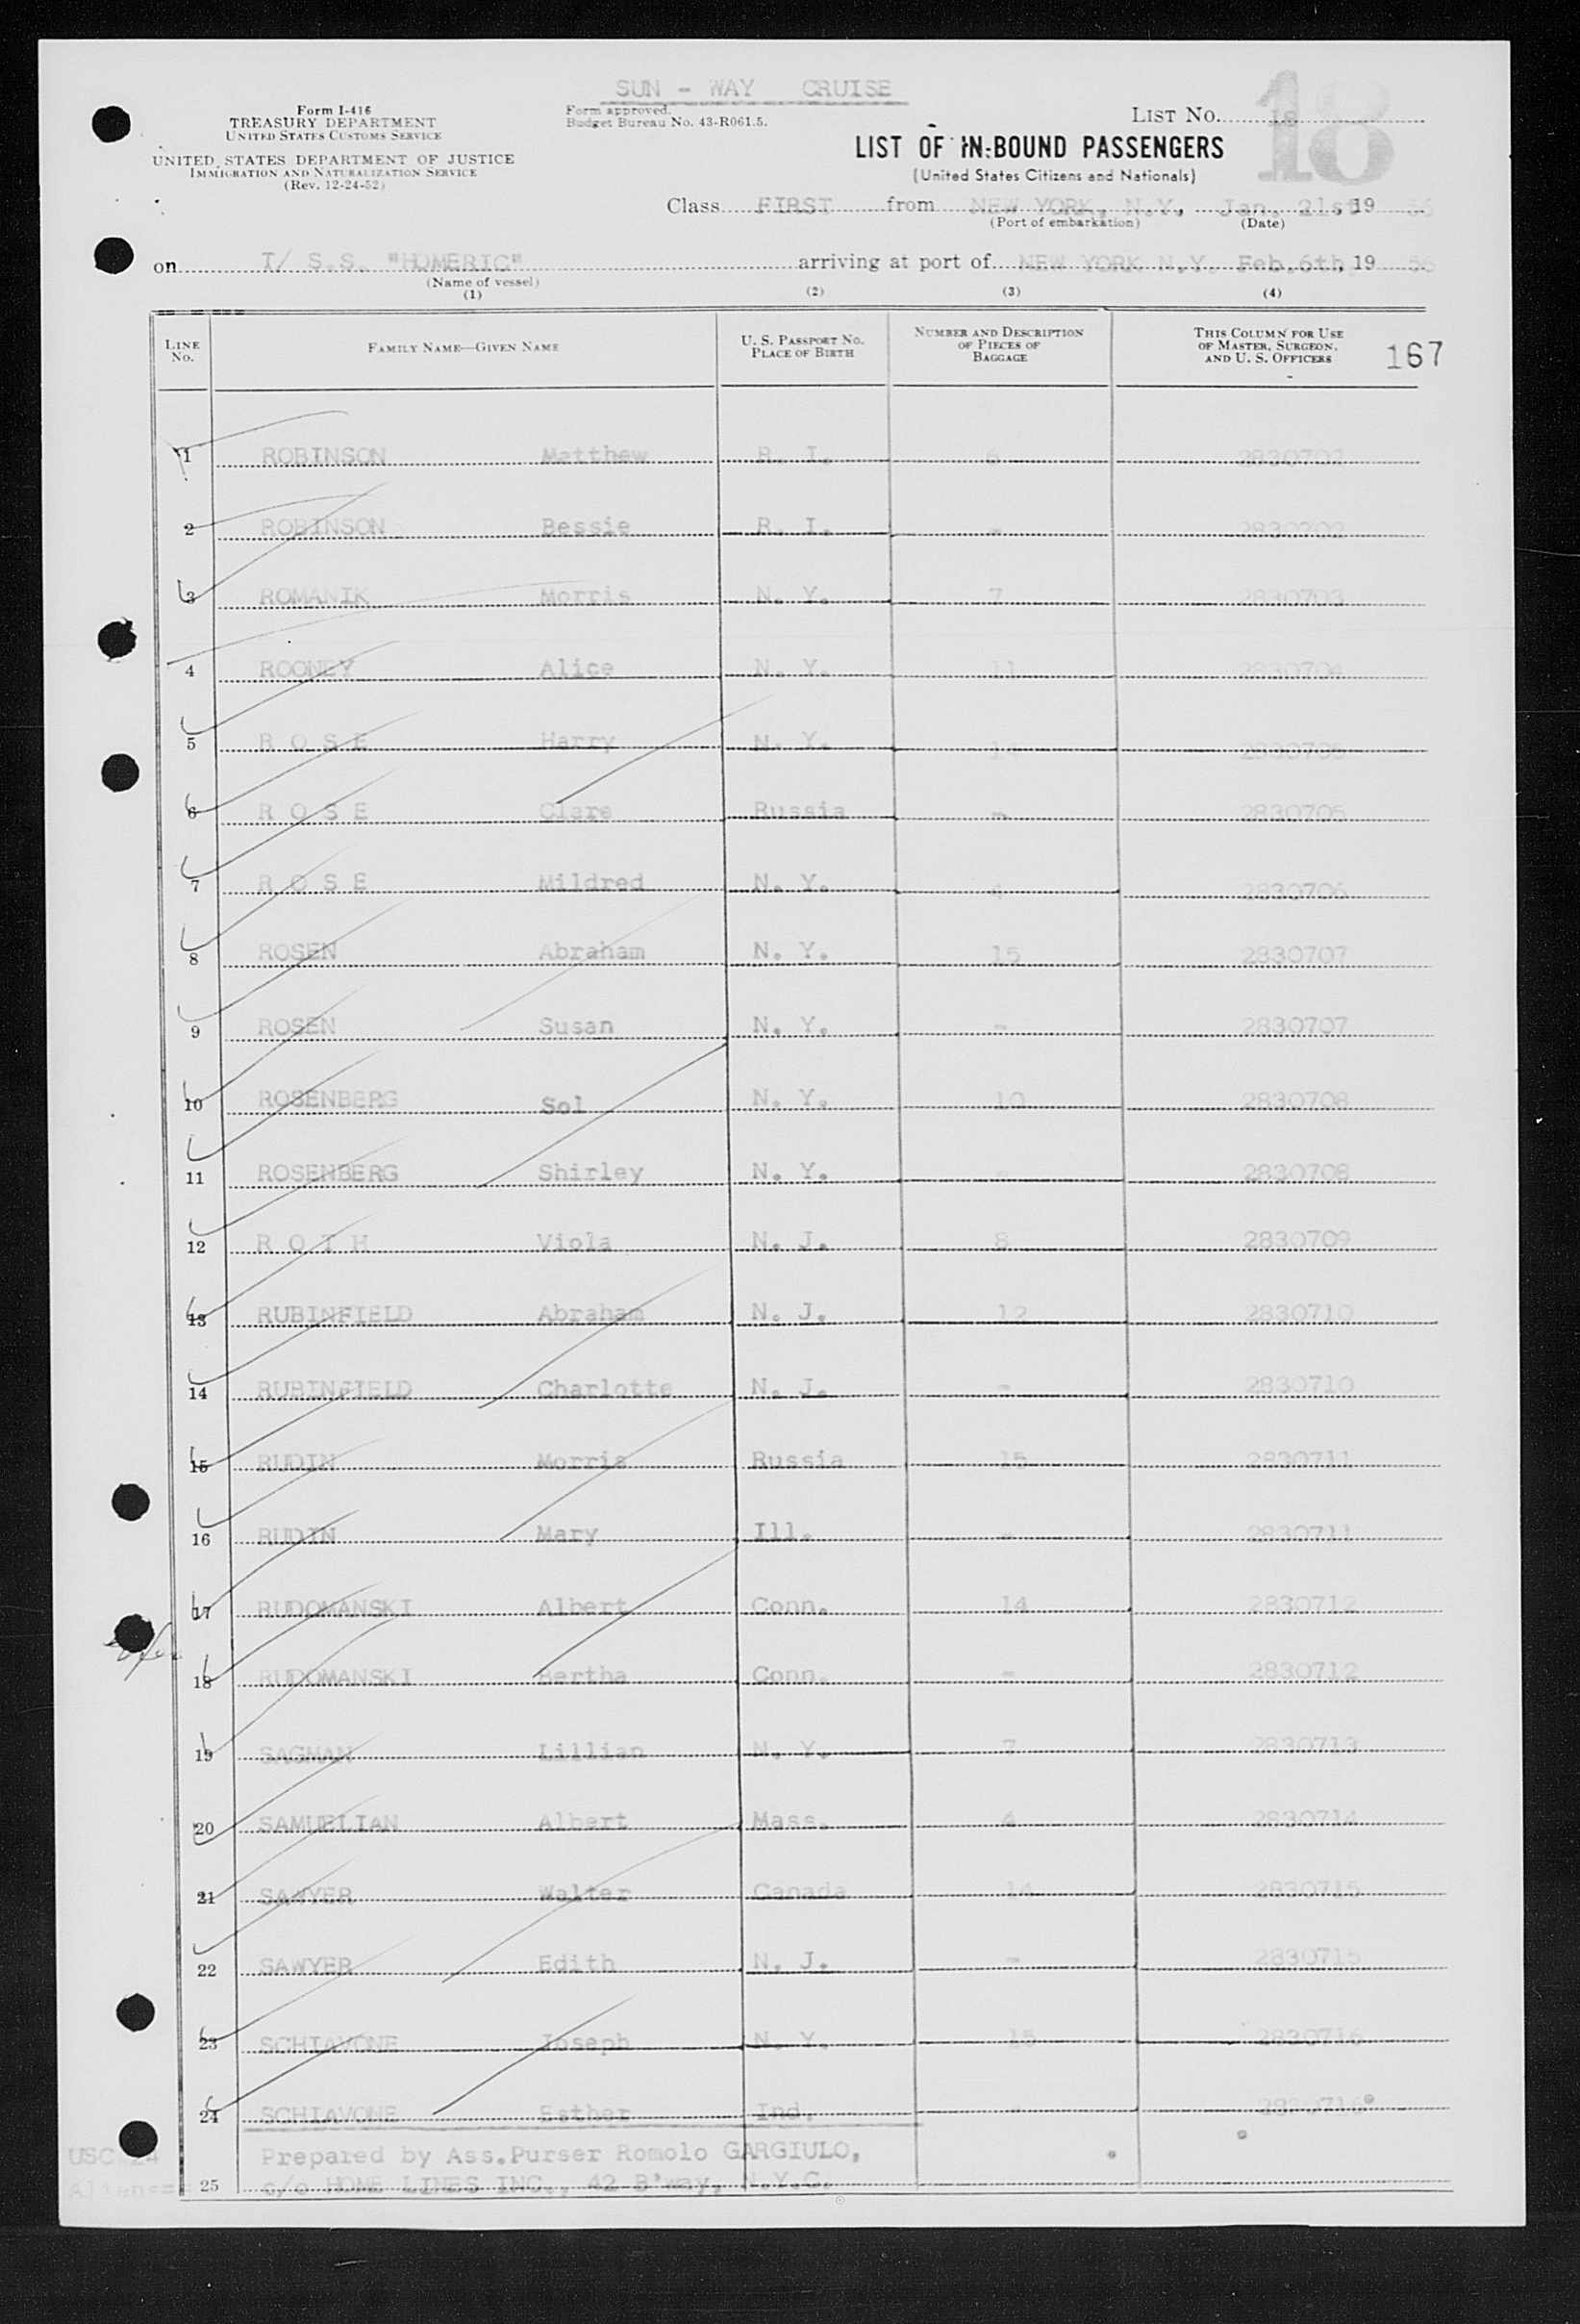 SUN - WAY CRUISE
Form I-416
TREASURY DEPARTMENT
UNITED STATES CUSTOMS SERVICE
UNITED STATES DEPARTMENT OF JUSTICE
IMMIGRATION AND NATURALIZATION SERVICE
(Rev. 12-24-52)
Form approved.
Budget Bureau No. 43-R061.5.
LIST No. 18
18
LIST OF IN-BOUND PASSENGERS
(United States Citizens and Nationals)
Class FIRST from NEW YORK, N.Y., Jan. 21st, 19 56
(Port of embarkation) (Date)
on T/ S.S. "HOMERIC" arriving at port of NEW YORK N.Y. Feb.6th, 19 56
(Name of vessel)
(1) (2) (3) (4)
LINE No. FAMILY NAME—GIVEN NAME U. S. PASSPORT NO. PLACE OF BIRTH NUMBER AND DESCRIPTION OF PIECES OF BAGGAGE THIS COLUMN FOR USE OF MASTER, SURGEON, AND U. S. OFFICERS 167
1 ROBINSON Matthew R. I. 6 2830702
2 ROBINSON Bessie R. I. - 2830702
3 ROMANIK Morris N. Y. 7 2830703
4 ROONEY Alice N. Y. 11 2830704
5 R O S E Harry N. Y. 2830705
6 R O S E Clara Russia - 2830705
7 R O S E Mildred N. Y. 4 2830706
8 ROSEN Abraham N. Y. 15 2830707
9 ROSEN Susan N. Y. - 2830707
10 ROSENBERG Sol N. Y. 10 2830708
11 ROSENBERG Shirley N. Y. - 2830708
12 R O T H Viola N. J. 8 2830709
13 RUBINFIELD Abraham N. J. 12 2830710
14 RUBINFIELD Charlotte N. J. - 2830710
15 RUDIN Morris Russia 15 2830711
16 RUDIN Mary Ill. - 2830711
17 RUDOMANSKI Albert Conn. 14 2830712
18 RUDOMANSKI Bertha Conn. - 2830712
19 SAGMAN Lillian N. Y. 7 2830713
20 SAMUELIAN Albert Mass. 4 2830714
21 SAWYER Walter Canada 14 2830715
22 SAWYER Edith N. J. - 2830715
23 SCHIAVONE Joseph N. Y. 15 2830716
24 SCHIAVONE Esther Ind. - 2830716
USC 24 Prepared by Ass.Purser Romolo GARGIULO,
Alien== 25 c/o HOME LINES INC., 42 B'way, N.Y.C.